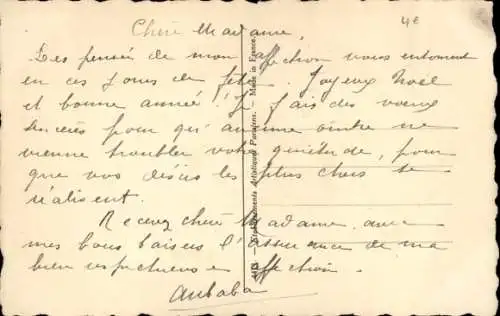 4€
Chère Madame,
Les pensées de mon affection vous entourent
en ces jours de fête. Joyeux Noël
et bonne année !! Je fais des voeux
sincères pour qu'aucune ombre ne
vienne troubler votre quiétude, pour
que vos désirs les plus chers se
réalisent.
Recevez chère Madame, avec
mes bons baisers l'assurance de ma
bien respectueuse affection.
Etablissements Artistiques Parisiens. — Made in France.